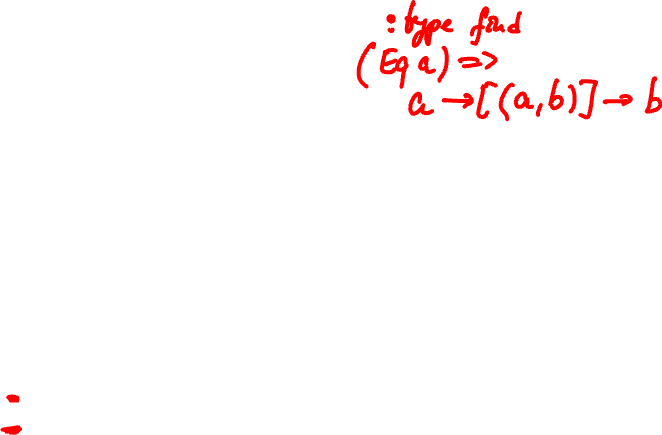 :type find
(Eq a) =>
a → [(a,b)] → b